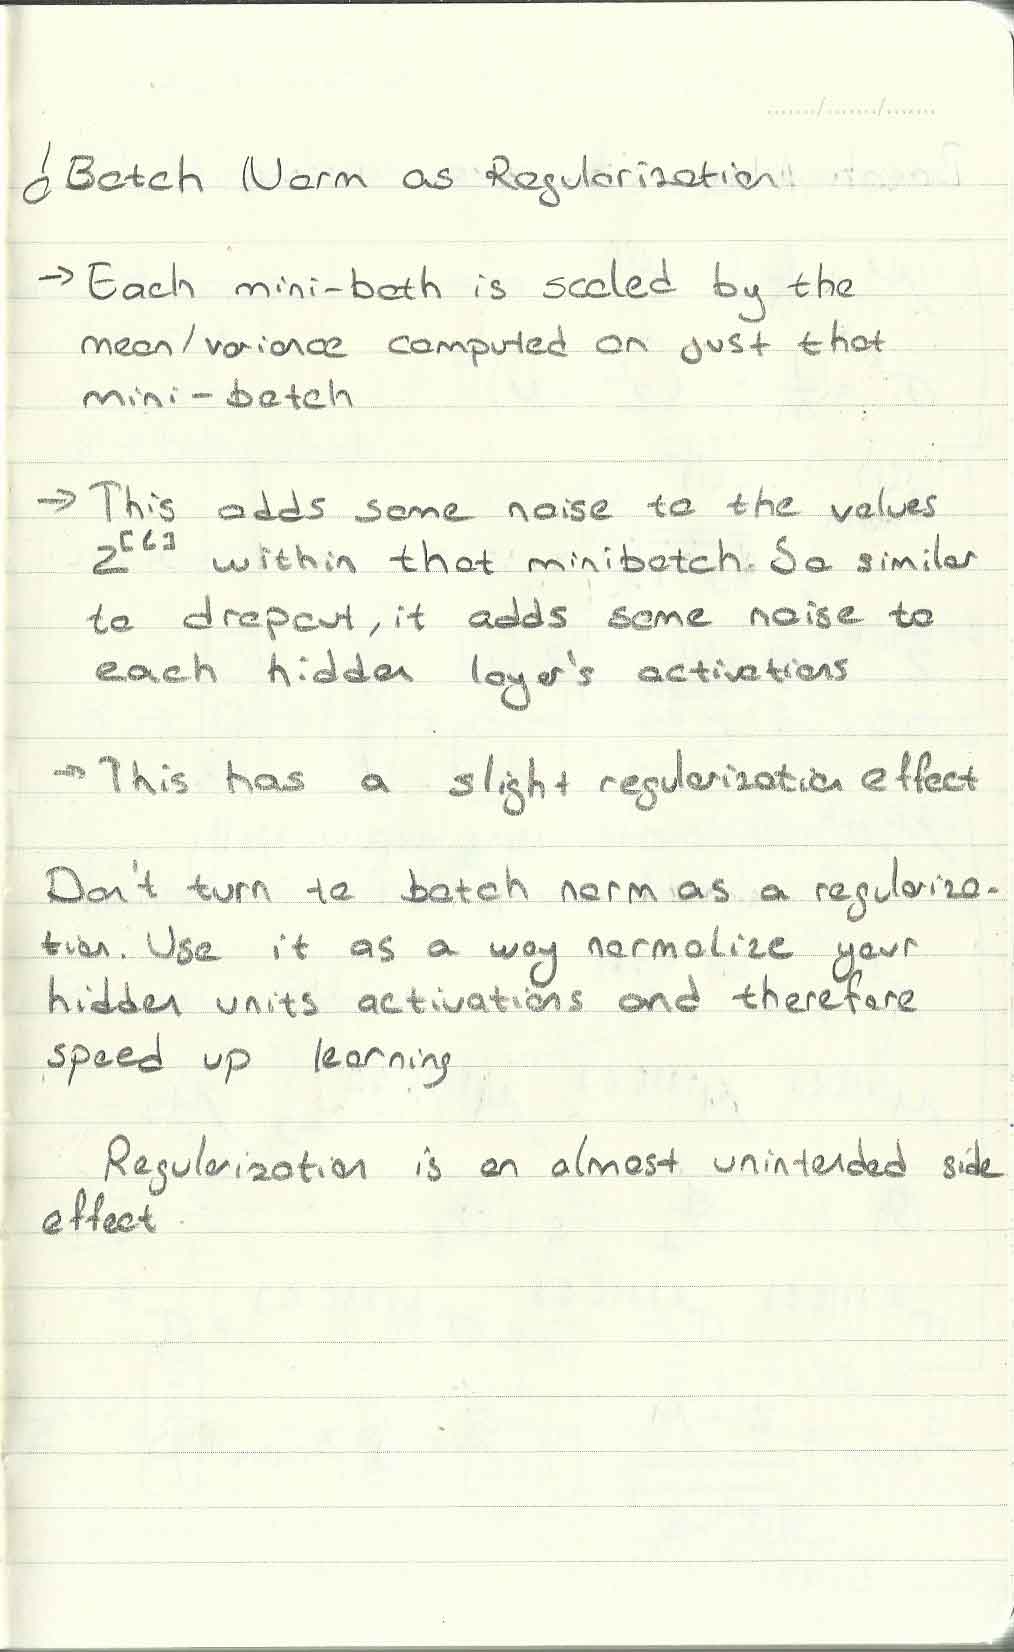 Batch Norm as Regularization
→ Each mini-bath is scaled by the
mean/variance computed on just that
mini-batch
→ This adds some noise to the values
z[l] within that minibatch. So similar
to dropout, it adds some noise to
each hidden layer's activations
→ This has a slight regularization effect
Don't turn to batch norm as a regulariza-
tion. Use it as a way normalize your
hidden units activations and therefore
speed up learning
Regularization is an almost unintended side
effect